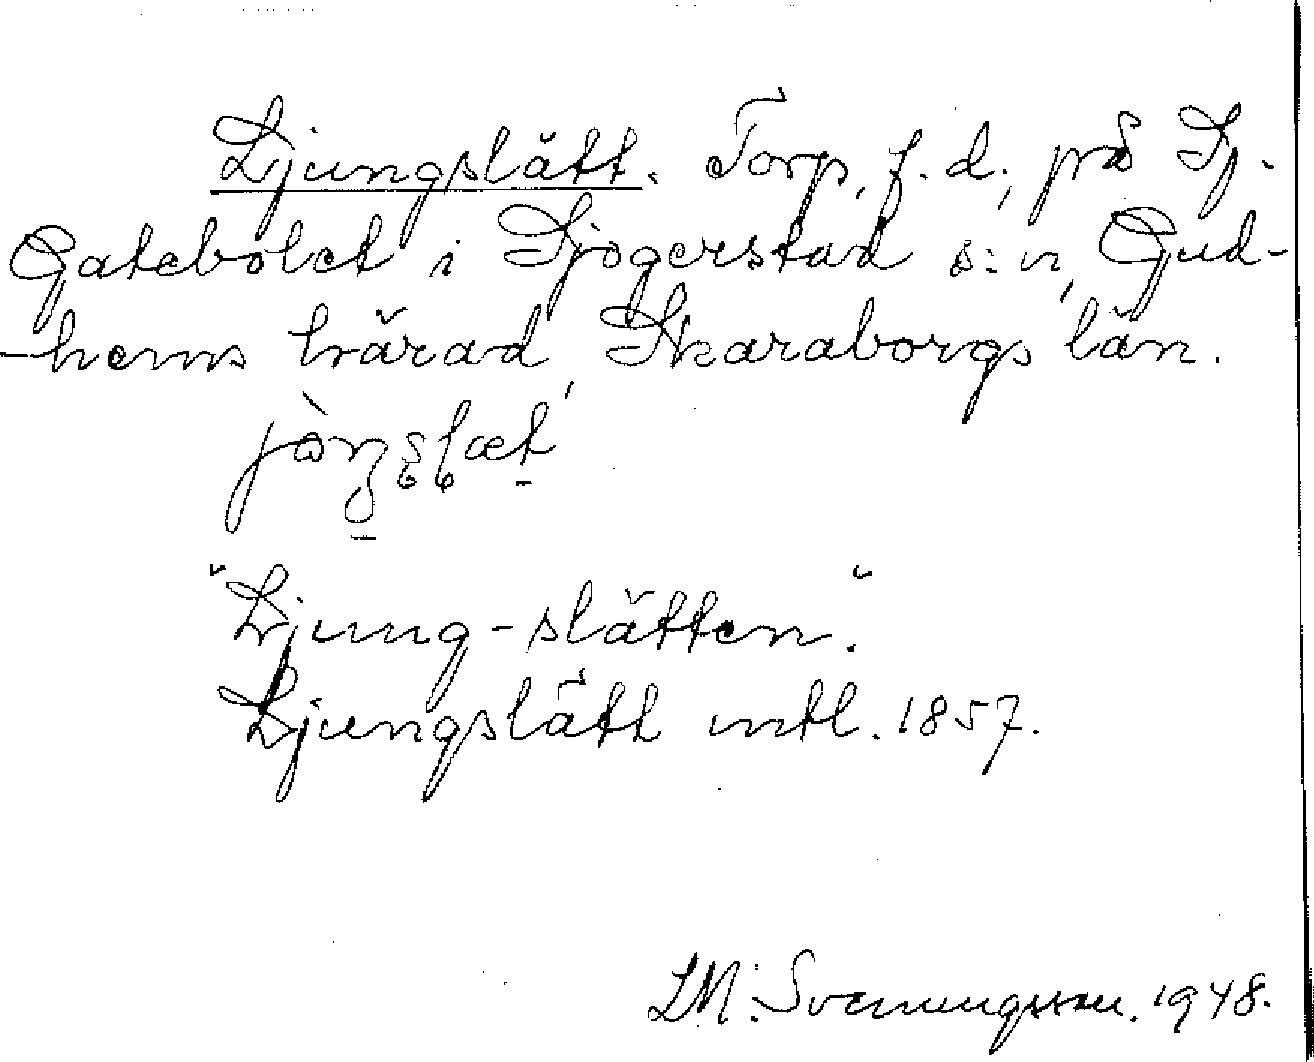 Ljungslätt. Torp, f. d., på Sj.
Gatebolet i Sjogerstad s:n, Gud-
-hems härad, Skaraborgs län.
"Ljung-slätten."
Ljungslätt mtl. 1857.
LM. Svenungsson. 1948.